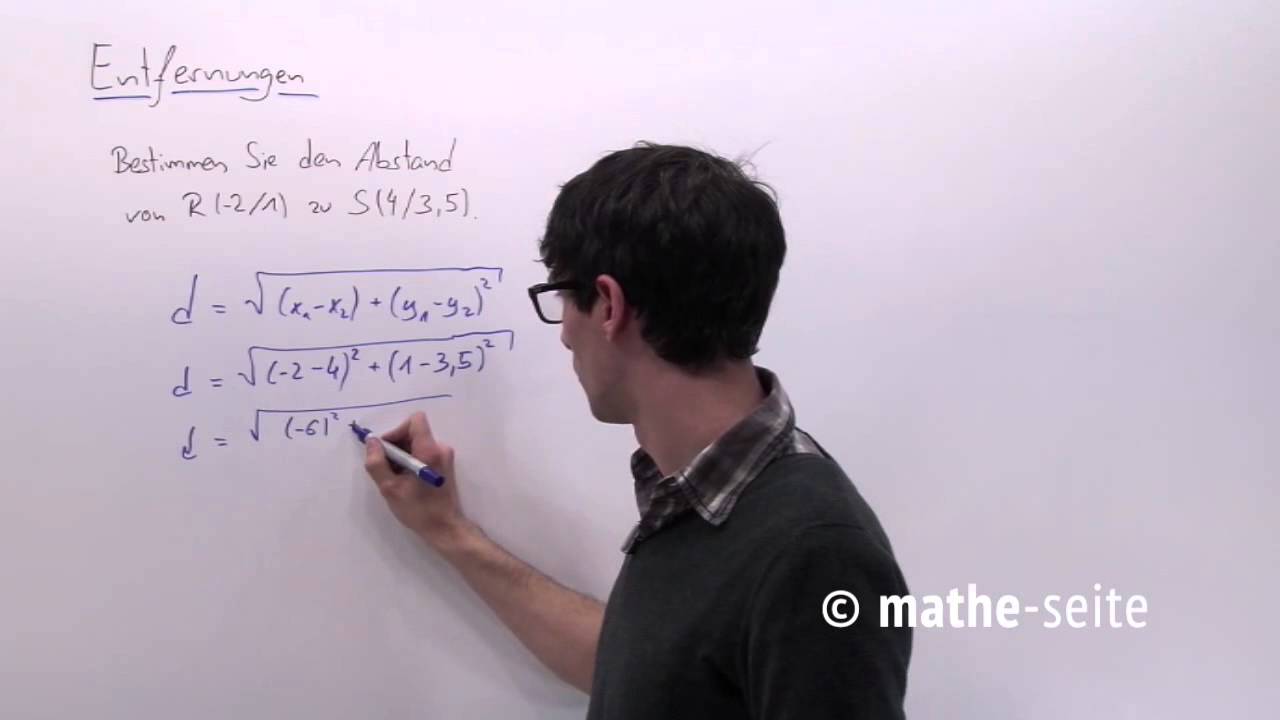 Entfernungen
Bestimmen Sie den Abstand
von R(-2/1) zu S(4/3,5).
d = √(x₁-x₂) + (y₁-y₂)²
d = √(-2-4)² + (1-3,5)²
d = √(-6)² +
© mathe-seite